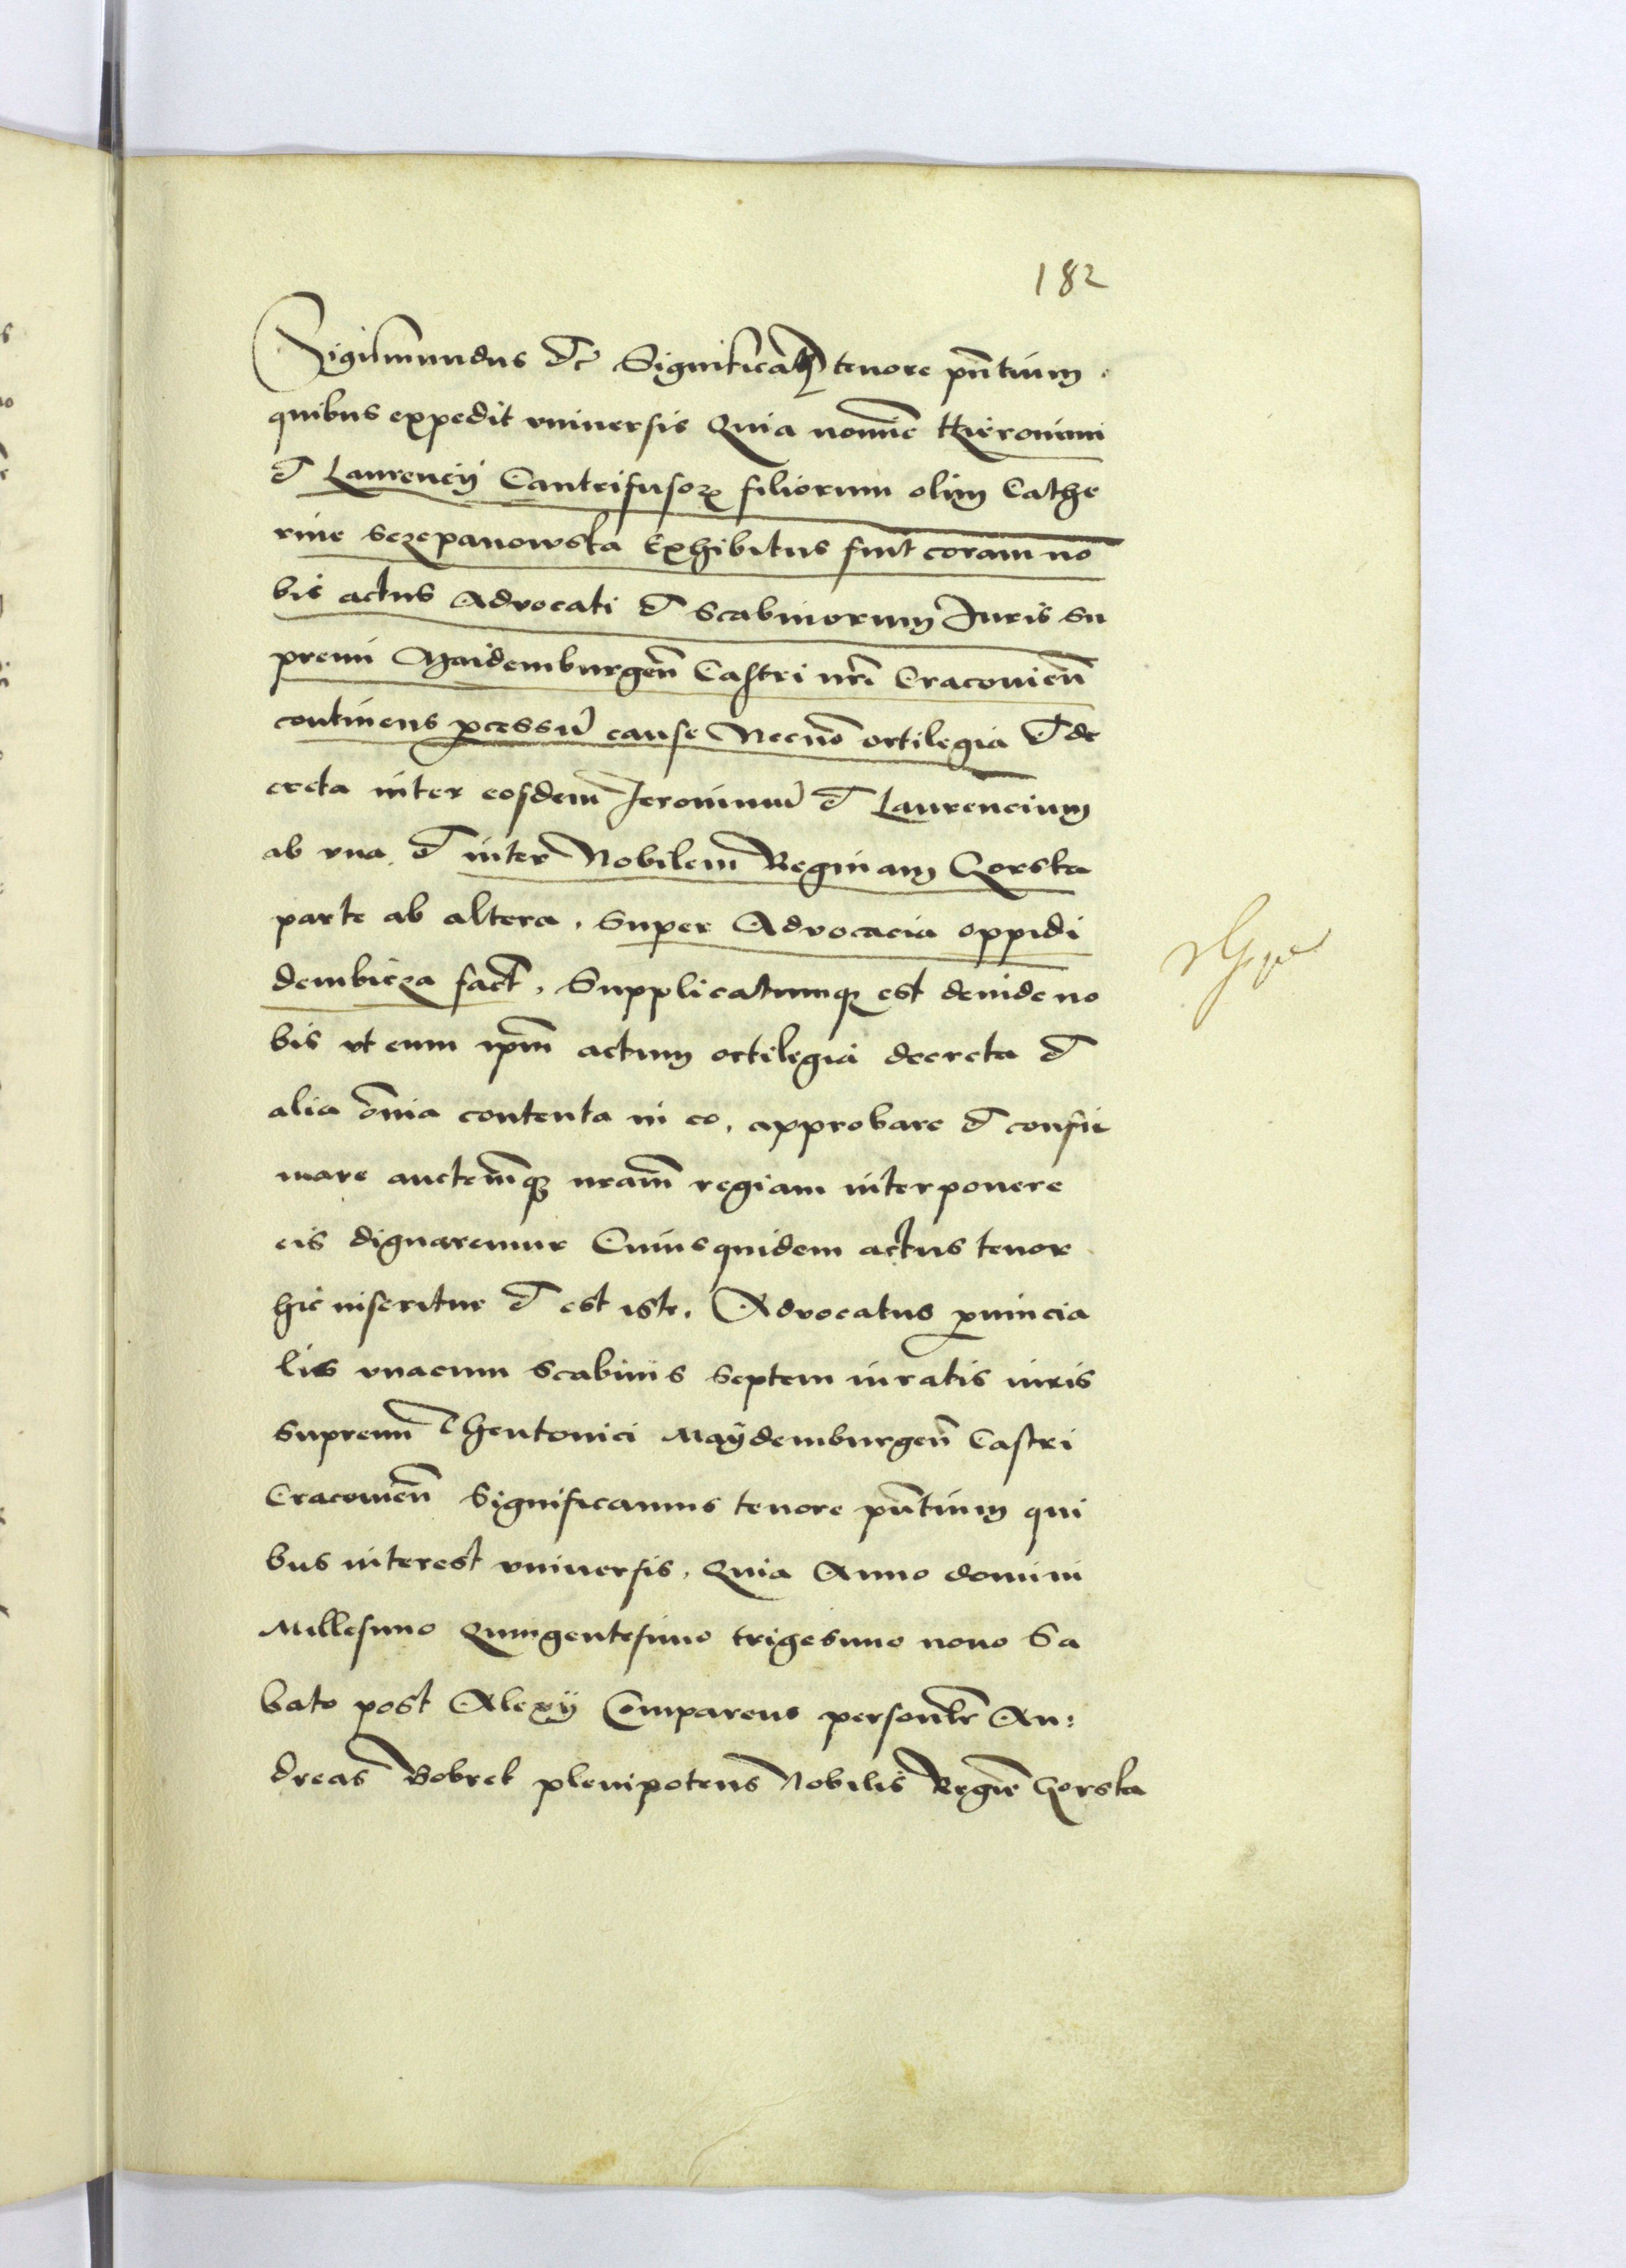 182
Sigismundus etc Significam9 tenore pn̄tium.
quibus expedit vniuersis Quia nomīe Hieronimi
et Laurencij Cantrifusorꝝ filiorum olim Cathe
rine Sczepanowska Exhibitus fuit coram no
bis actus Advocati et Scabinorum Juris Su
premi Maidemburgen̄ Castri nrī Cracouien̄
continens ꝓcessū cause Necnō ortilegia et de
creta inter eosdem Jeronimū et Laurencium
ab vna et inter Nobilem Reginam Gorska
parte ab altera, Super Advocacia oppidi
dembicza fact̄, Supplicatumqꝫ est deinde no
bis vt eum ip̄m actum ortilegia decreta et
alia ōnia contenta in eo, approbare et confir
mare auctem̄qꝫ nram̄ regiam interponere
eis dignaremur Cuius quidem actus tenor
hic inseritur et est iste. Advocatus ꝓuincia
lis vnacum Scabinis Septem iuratis iuris
Supremi Theutonici Maÿdemburgen̄ Castri
Cracouien̄ Significamus tenore pn̄tium qui
bus interest vniuersis, Quia Anno domini
Millesimo Quingentesimo trigesimo nono Sa
bato post Alexÿ Comparens personl̄r An:
dreas Bobrek plenipotens Nobilis Regīe Gorska